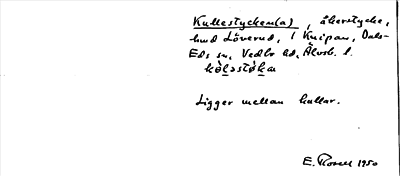 Kullestycken(a), åkerstycke,
hmd Löverud, i Knipan, Dals-
Eds sn, Vedbo hd, Älvsb. l.
kɵ̀ləstøkən
Ligger mellan kullar.
E. Rosell 1950